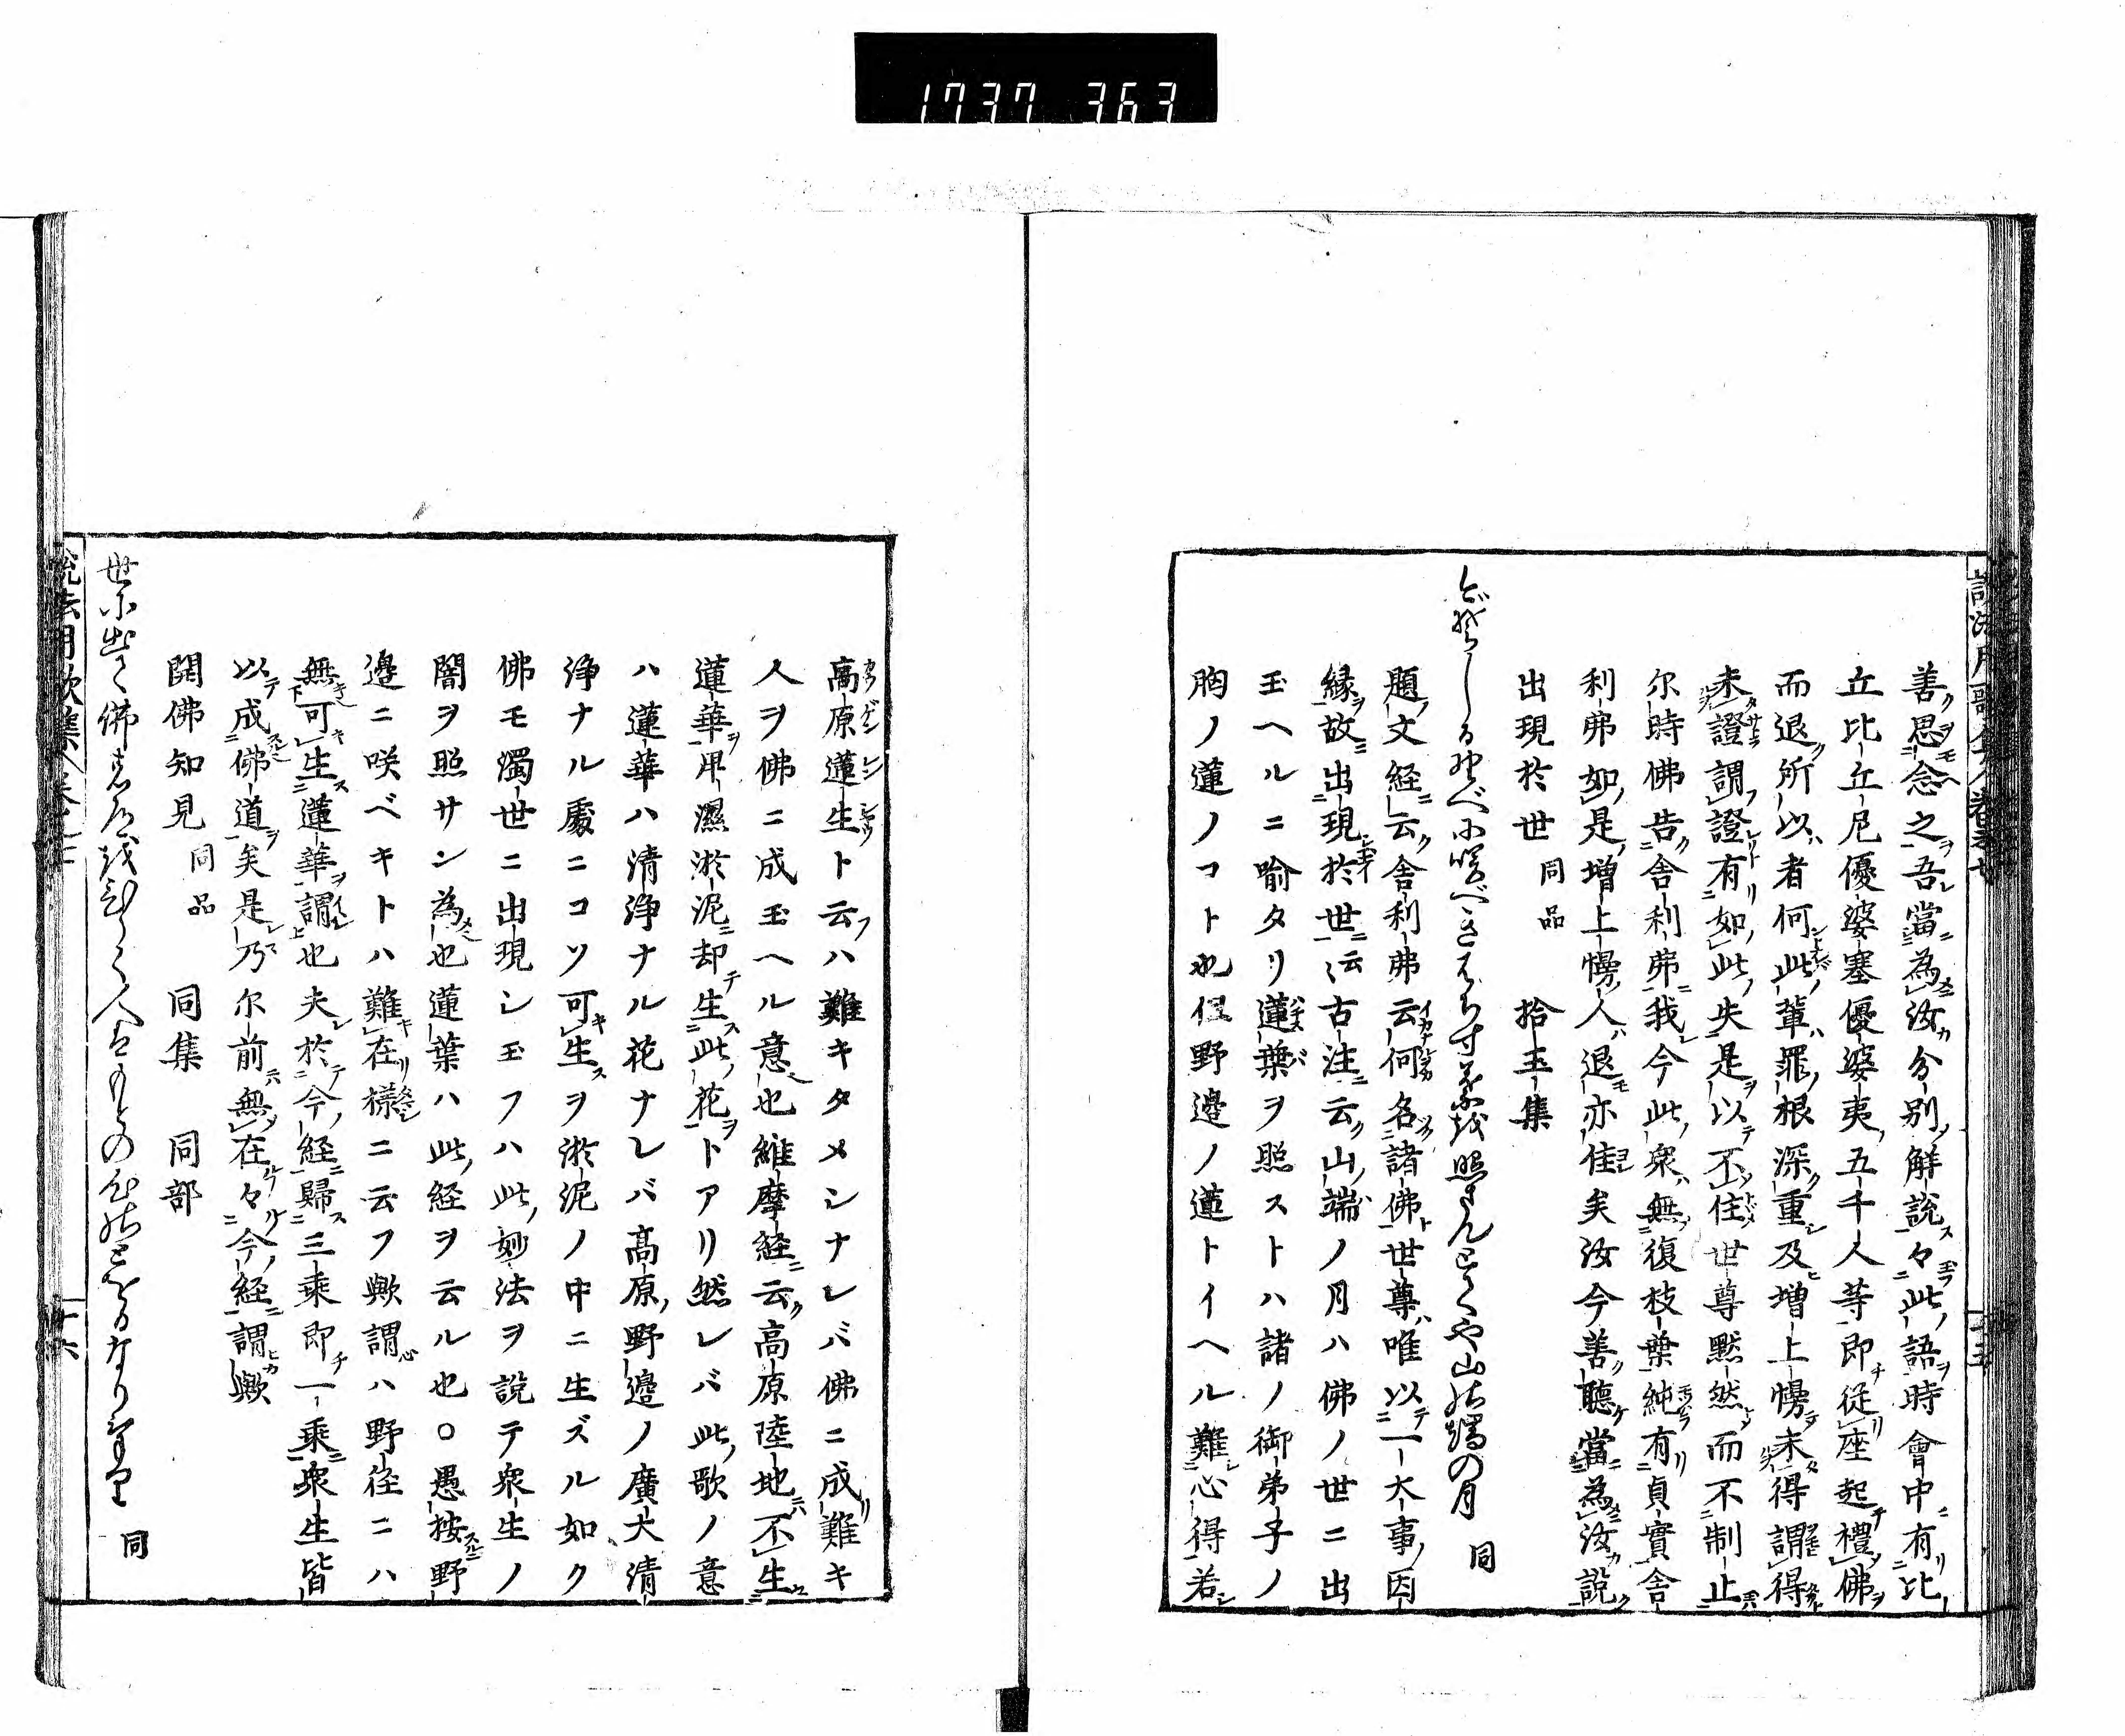 1737 363
善思念之吾當為汝分別解説々此語時會中有比
丘比丘尼優婆塞優婆夷五千人等即從座起禮佛
而退所以者何此輩罪根深重及増上慢未得謂得
未證謂證有如此失是以不住世尊黙然而不制止
尓時佛告舎利弗我今此衆無復枝葉純有貞實舎
利弗如是増上慢人退亦佳矣汝今善聽當為汝説
出現於世 同品 拾玉集
題文経云舎利弗云何名諸佛世尊唯以一大事因
縁故出現於世云云古注云山端ノ月ハ佛ノ世ニ出
玉ヘルニ喩タリ蓮葉ヲ照ストハ諸ノ御弟子ノ
胸ノ蓮ノコト也但野邉ノ蓮トイヘル難心得若
高原蓮生ト云ハ難キタメシナレバ佛ニ成難キ
人ヲ佛ニ成玉ヘル意也維摩経云高原陸地不生
蓮華卑濕淤泥却生此花トアリ然レバ此歌ノ意
ハ蓮華ハ清浄ナル花ナレバ高原野邉ノ廣大清
浄ナル處ニコソ可生ヲ淤泥ノ中ニ生ズル如ク
佛モ濁世ニ出現シ玉フハ此妙法ヲ説テ衆生ノ
闇ヲ照サン為也蓮葉ハ此経ヲ云ル也○愚按野
邉ニ咲ベキトハ難在様ニ云フ歟謂ハ野徑ニハ
無可生蓮華謂也夫於今経歸三乘即一乘衆生皆
以成佛道矣是乃尓前無在々今経謂歟
開佛知見 同品 同集 同部